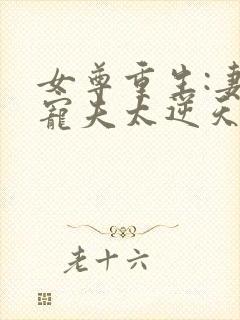 女尊重生:妻
寵夫太逆天
老十六